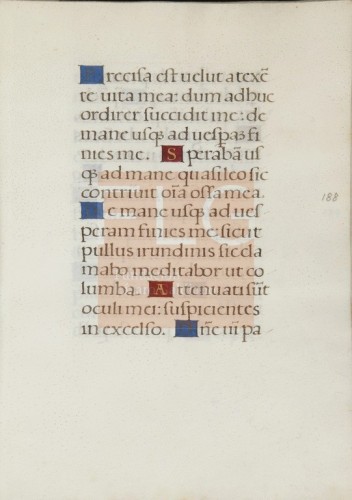 Precisa est uelut a texẽ
te uita mea: dum adhuc
ordirer succidit me: de
mane usqꝫ ad uesꝑaꝫ fi
nies me. Sperabã us
qꝫ ad mane quasi leo sic
contriuit oĩa ossa mea.
De mane usqꝫ ad ues
peram finies me: sicut
pullus irundinis sic cla
mabo meditabor ut co
lumba. Attenuati sũt
oculi mei: suspicientes
in excelso. Dñe uĩ pa
188
FLC